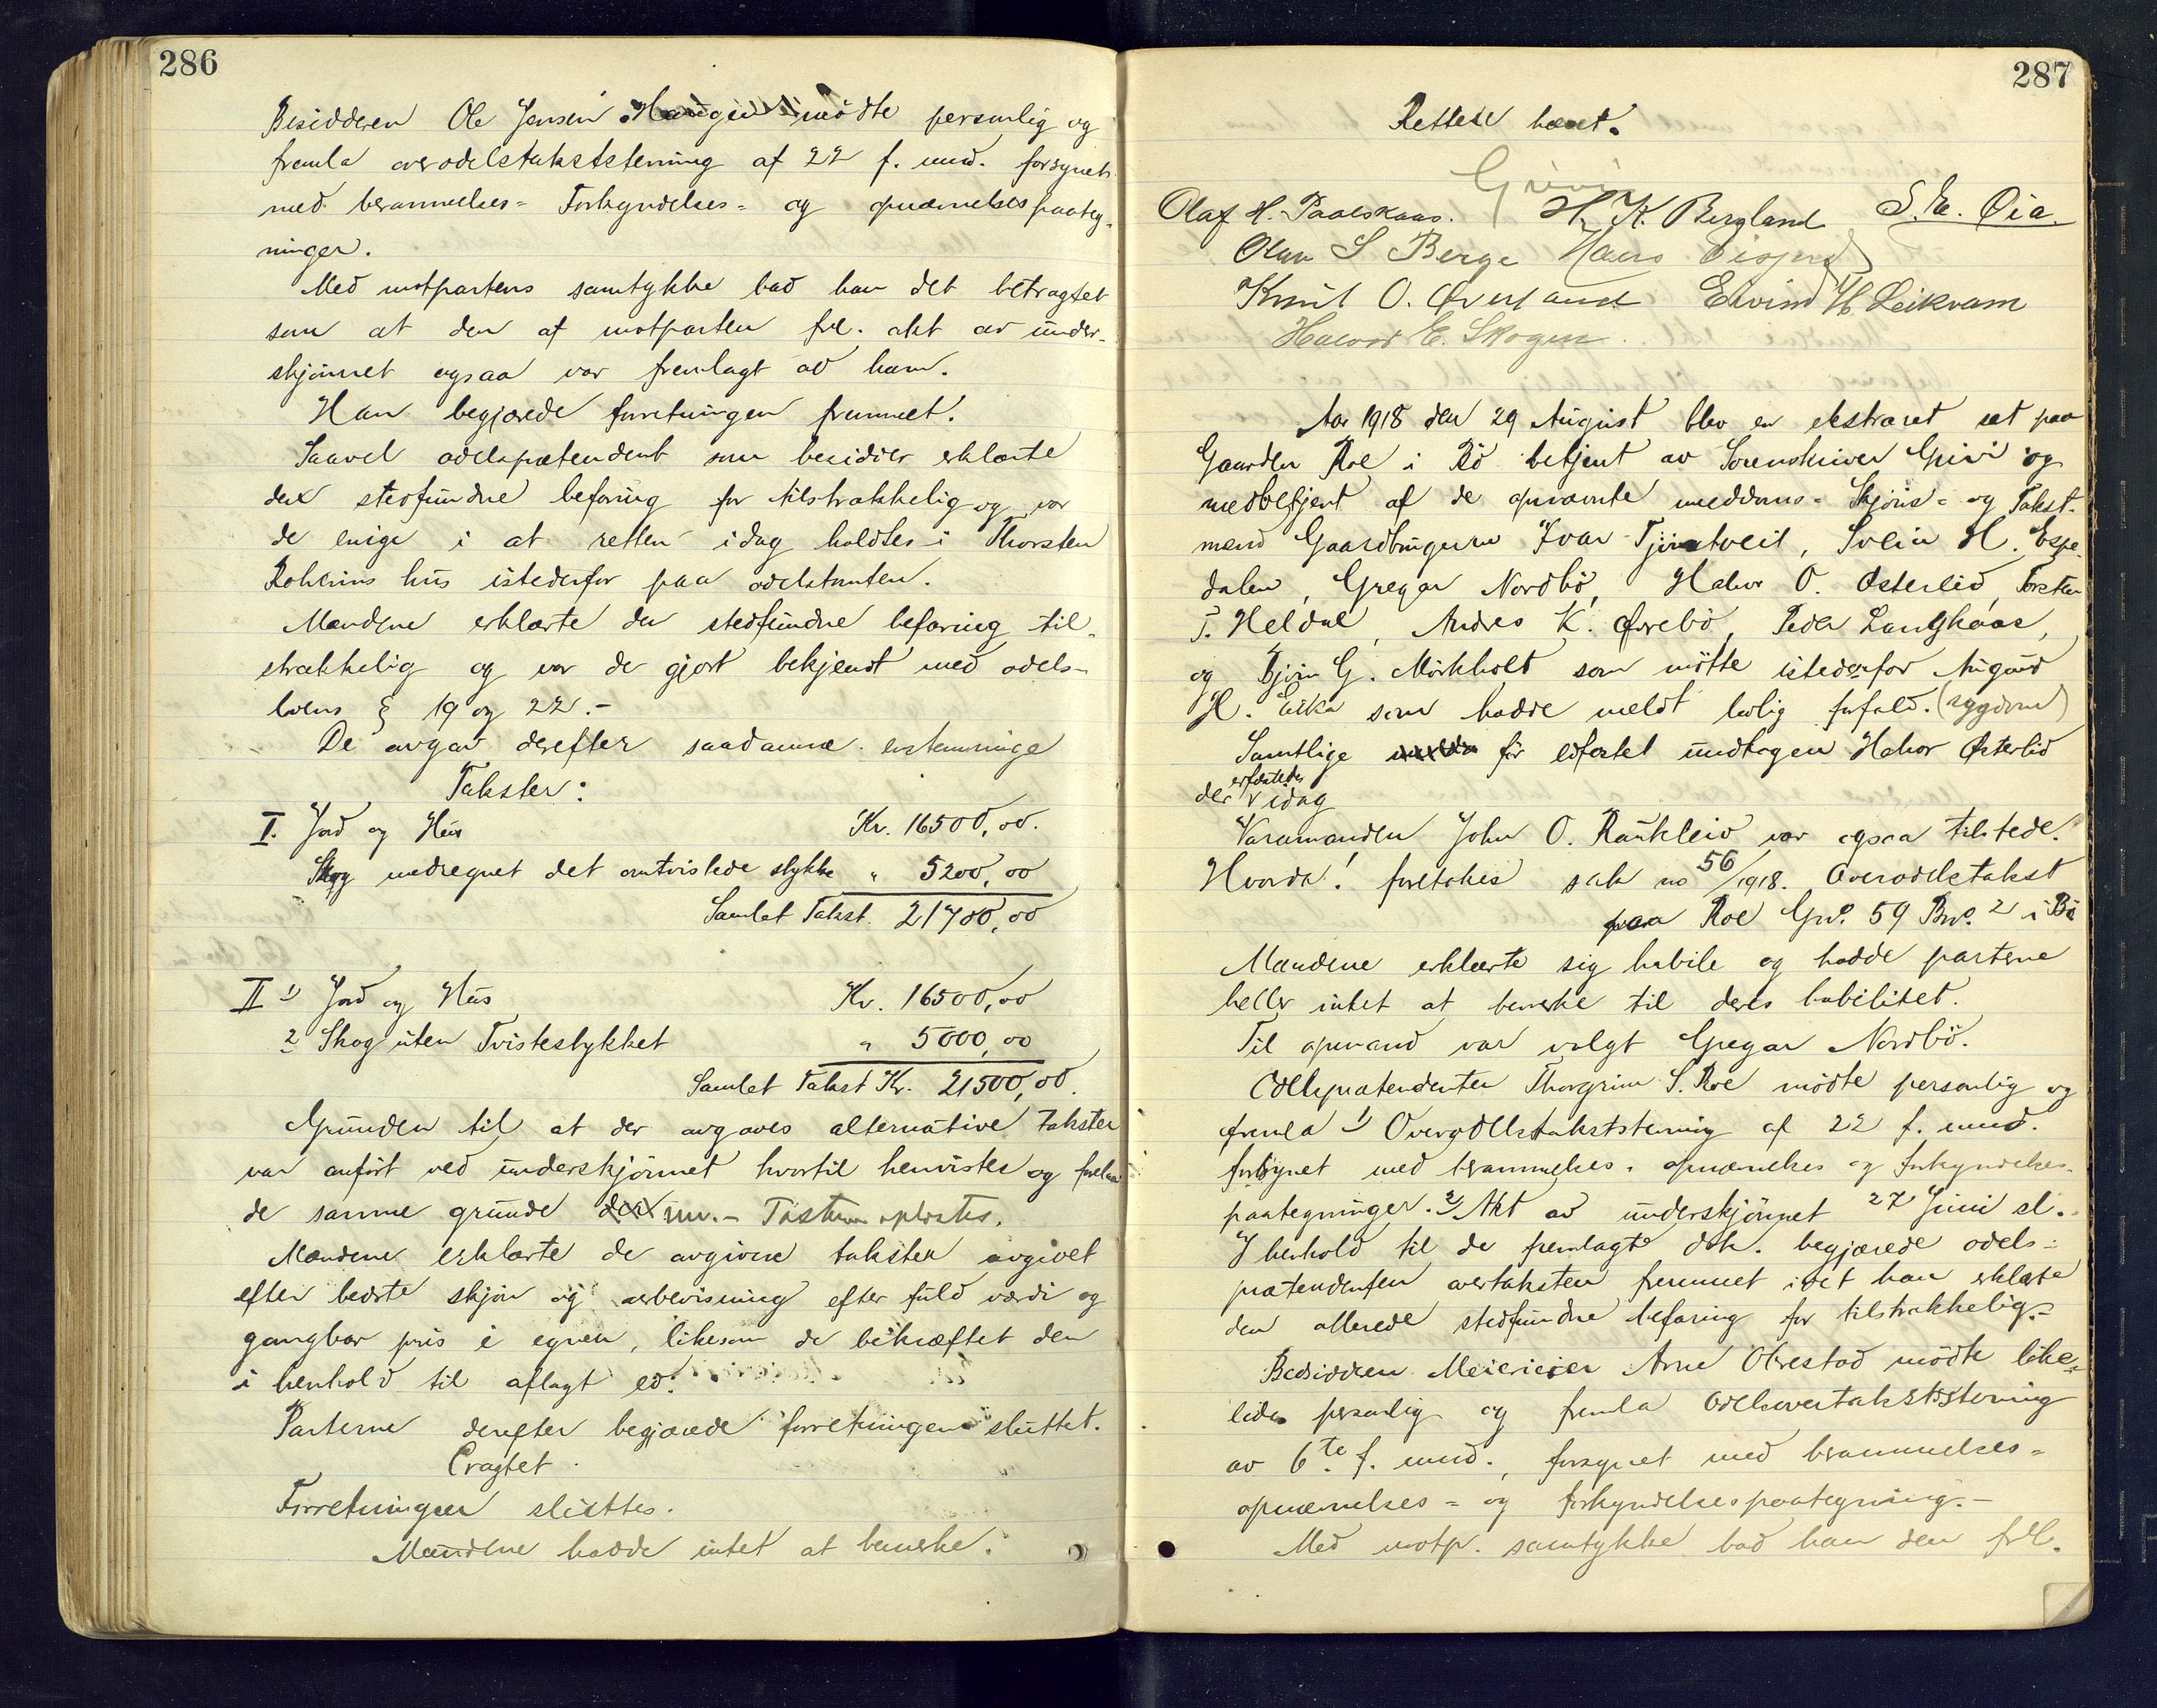 286
Besidderen Ole Jensen Haugen mödte personlig og
fremla overodelstakststevning af 22 f. mnd. forsynet
med berammelses- Forkyndelses- og opnævnelsespaateg-
ninger.
Med motpartens samtykke bad han det betragtet
som at den af motparten frl. akt av under-
skjönnet ogsaa var fremlagt av ham.
Han begjærede forretningen fremmet.
Saavel odelsprætendent som besidder erklærte
den stedfundne befaring for tilstrækkelig og var
de enige i at retten idag holdtes i Thorsten
hus istedenfor paa odelstomten.
Mændene erklærte den stedfundne befaring til-
strækkelig og var de gjort bekjendt med odels-
lovens § 19 og 22.-
De avgav derefter saadanne enstemmige
Takster:
I. Jord og Hus Kr. 16500,00.
Skog medregnet det omtvistede stykke " 5200,00
Samlet Takst. 21700,00
II 1) Jord og Hus Kr. 16500,00
2 Skog uten Tvistestykket " 5000,00
Samlet Takst Kr. 21500,00.
Grunden til at der avgaves alternative takster
var anfört ved underskjönnet hvortil henvistes og forelaa
de samme grunde nu.-
Mændene erklærte de avgivne takster avgivet
efter bedste skjön og overbevisning efter fuld værdi og
gangbar pris i egnen, likesom de bekræftet den
i henhold til aflagt ed.
Parterne derefter begjærede forretningen sluttet.
Eragtet
Forretningen sluttes.
Mændene hadde intet at bemerke.
287
Retten hævet.
Grivi
Olaf H. Paalskaas. H. K. Bergland S. E. Öia.
Olav S Berge Hans
Knut O. Överland Eivind H. Leikvam
Halvor E. Skogen.
Aar 1918 den 29 August blev en ekstraret sat paa
Gaarden Roe i Bö betjent av Sorenskriver Grivi og
medbetjent af de opnævnte meddoms- Skjöns- og Takst-
mænd Gaardbrugerne Ivar Tjöntveit, Svein H. Espe-
dalen, Gregar Nordbö, Halvor O. Österlid, Torsten
T. Heldal, Andres K. Örebö, Peder Langkaas,
og Björn G. Mörkholt som mötte istedenfor Augund
H. Eika som hadde meldt lovlig forfald. (sygdom)
Samtlige för edfæstet undtagen Halvor Österlid
der edfæstedes idag
Varamanden John O. Raukleiv var ogsaa tilstede.
Hvorda! foretokes sak no 56/1918. Overodelstakst
paa Roe Gno. 59 Bno. 2 i Bö
Mændene erklærte sig habile og hadde partene
heller intet at bemerke til deres habilitet.
Til opmand var valgt Gregar Nordbö.
Odelsprætendenten Thorgrim S. Roe mödte personlig og
fremla 1) Overodelstakststevning af 22 f. mnd.
forsynet med berammelses- opnævnelses og forkyndelses-
paategninger. 2) Akt av underskjönnet 27 Juni sl.
I henhold til de fremlagte dok. begjærede odels-
prætendenten overtaksten fremmet idet han erklærte
den allerede stedfundne befaring for tilstrækkelig.-
Besidderen Meierieier Arne Obrestad mödte like-
ledes personlig og fremla Odelsovertakststevning
av 6te f. mnd., forsynet med berammelses-
opnævnelses- og forkyndelsespaategning.-
Med motp. samtykke bad han den frl.